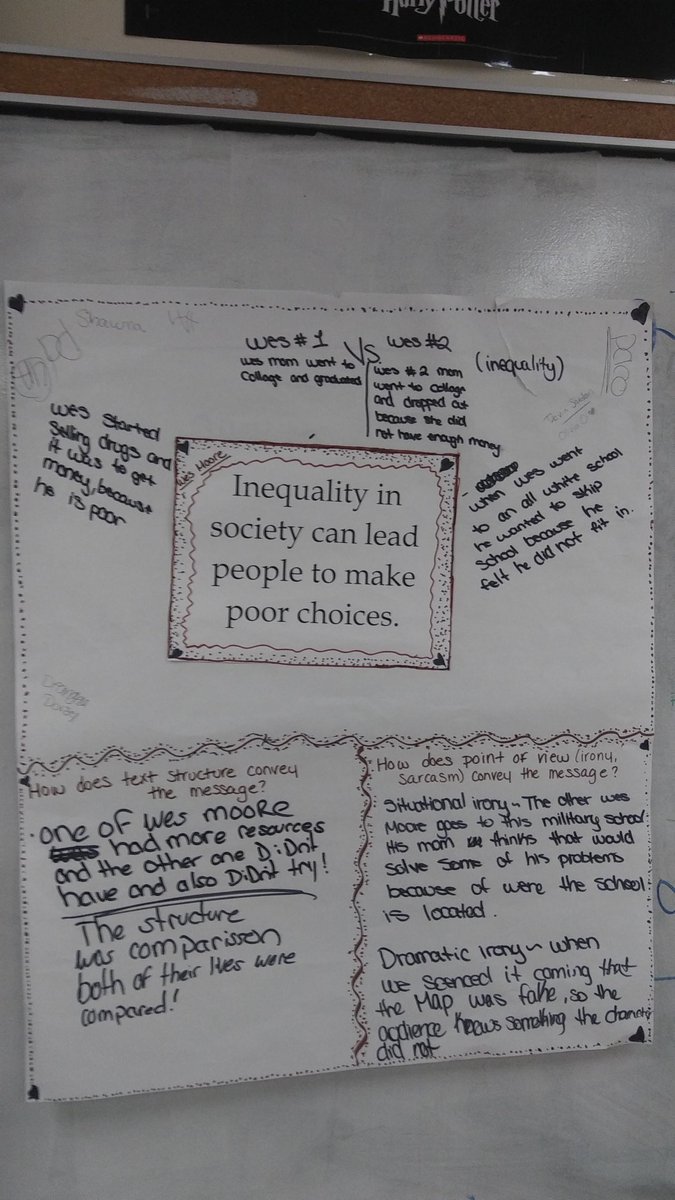 Harry Potter
SCHOLASTIC
Shawna
Wes #1
VS.
Wes #2
(inequality)
wes mom went to
collage and graduated
Wes #2 mom
went to collage
and dropped out
because she did
not have enough money
wes started
selling drugs and
it was to get
money, because
he is poor
Wes Moore
Inequality in
society can lead
people to make
poor choices.
when wes went
to an all white school
he wanted to skip
school because he
felt he did not fit in.
How does text structure convey
the message?
· one of wes moore
had more resources
and the other one DiDnt
have and also DiDnt try!
The structure
was comparissen
both of their lives were
compared!
How does point of view (irony,
sarcasm) convey the message?
Situational irony ~ The other wes
Moore goes to this military school.
His mom thinks that would
solve some of his problems
because of were the school
is located.
Dramatic Irony ~ when
we scenced it coming that
the Map was fake, so the
audience knows something the
did not